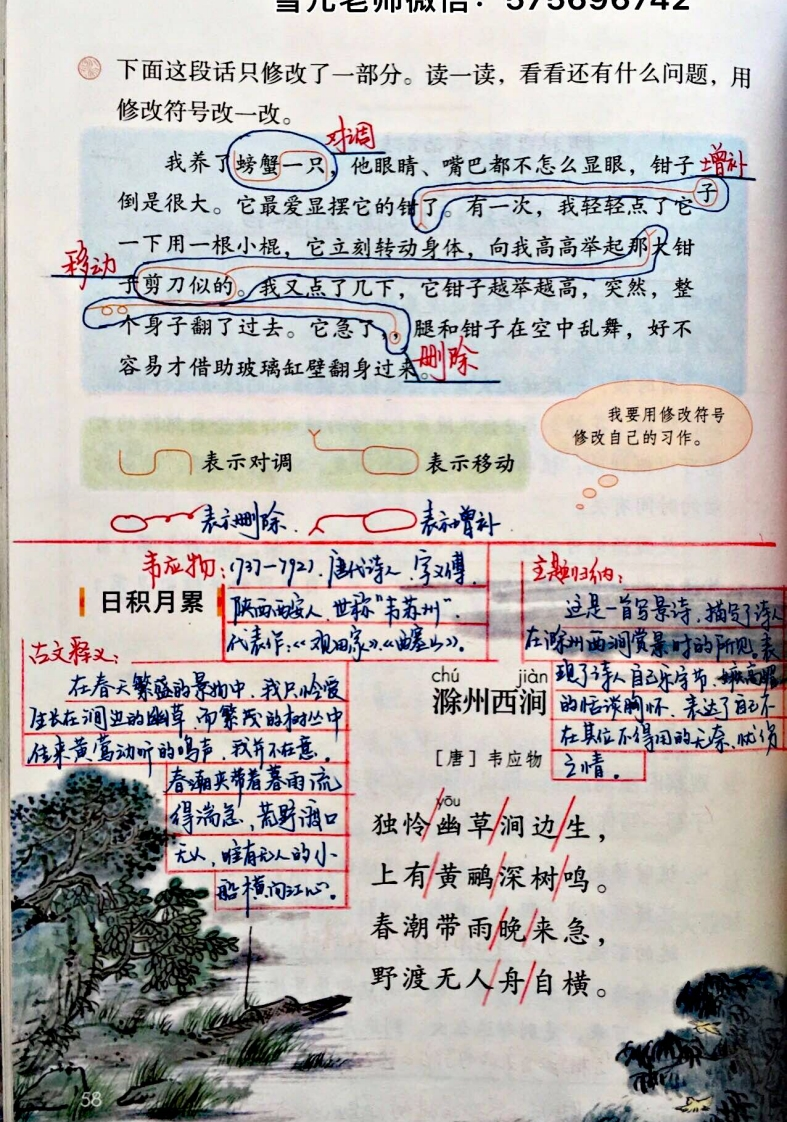 雪儿老师微信：575696742
下面这段话只修改了一部分。读一读，看看还有什么问题，用
修改符号改一改。
对调
我养了螃蟹一只，他眼睛、嘴巴都不怎么显眼，钳子
增补
子
倒是很大。它最爱显摆它的钳了。有一次，我轻轻点了它
一下用一根小棍，它立刻转动身体，向我高高举起那大钳
移动
子剪刀似的。我又点了几下，它钳子越举越高，突然，整
个身子翻了过去。它急了，，腿和钳子在空中乱舞，好不
容易才借助玻璃缸壁翻身过来。
删除
我要用修改符号
修改自己的习作。
表示对调 表示移动
表示删除 表示增补
韦应物：(737-792)，唐代诗人，字义博，
陕西西安人，世称"韦苏州"。
代表作：《观田家》《西塞山》。
日积月累
主题归纳：
这是一首写景诗，描写了诗人
在滁州西涧赏景时的所见。表
现了诗人自己乐守节，嫉高媚
的恬淡胸怀，表达了自己不
在其位不得用的无奈、忧伤
之情。
古文释义：
在春天繁盛的景物中，我只怜爱
生长在涧边的幽草，而繁茂的树丛中
传来黄莺动听的鸣声，我并不在意。
春潮夹带着暮雨流
得湍急，荒野渡口
无人，唯有无人的小
船横向江心。
chú jiàn
滁州西涧
[唐] 韦应物
yōu
独怜幽草涧边生，
上有黄鹂深树鸣。
春潮带雨晚来急，
野渡无人舟自横。
58